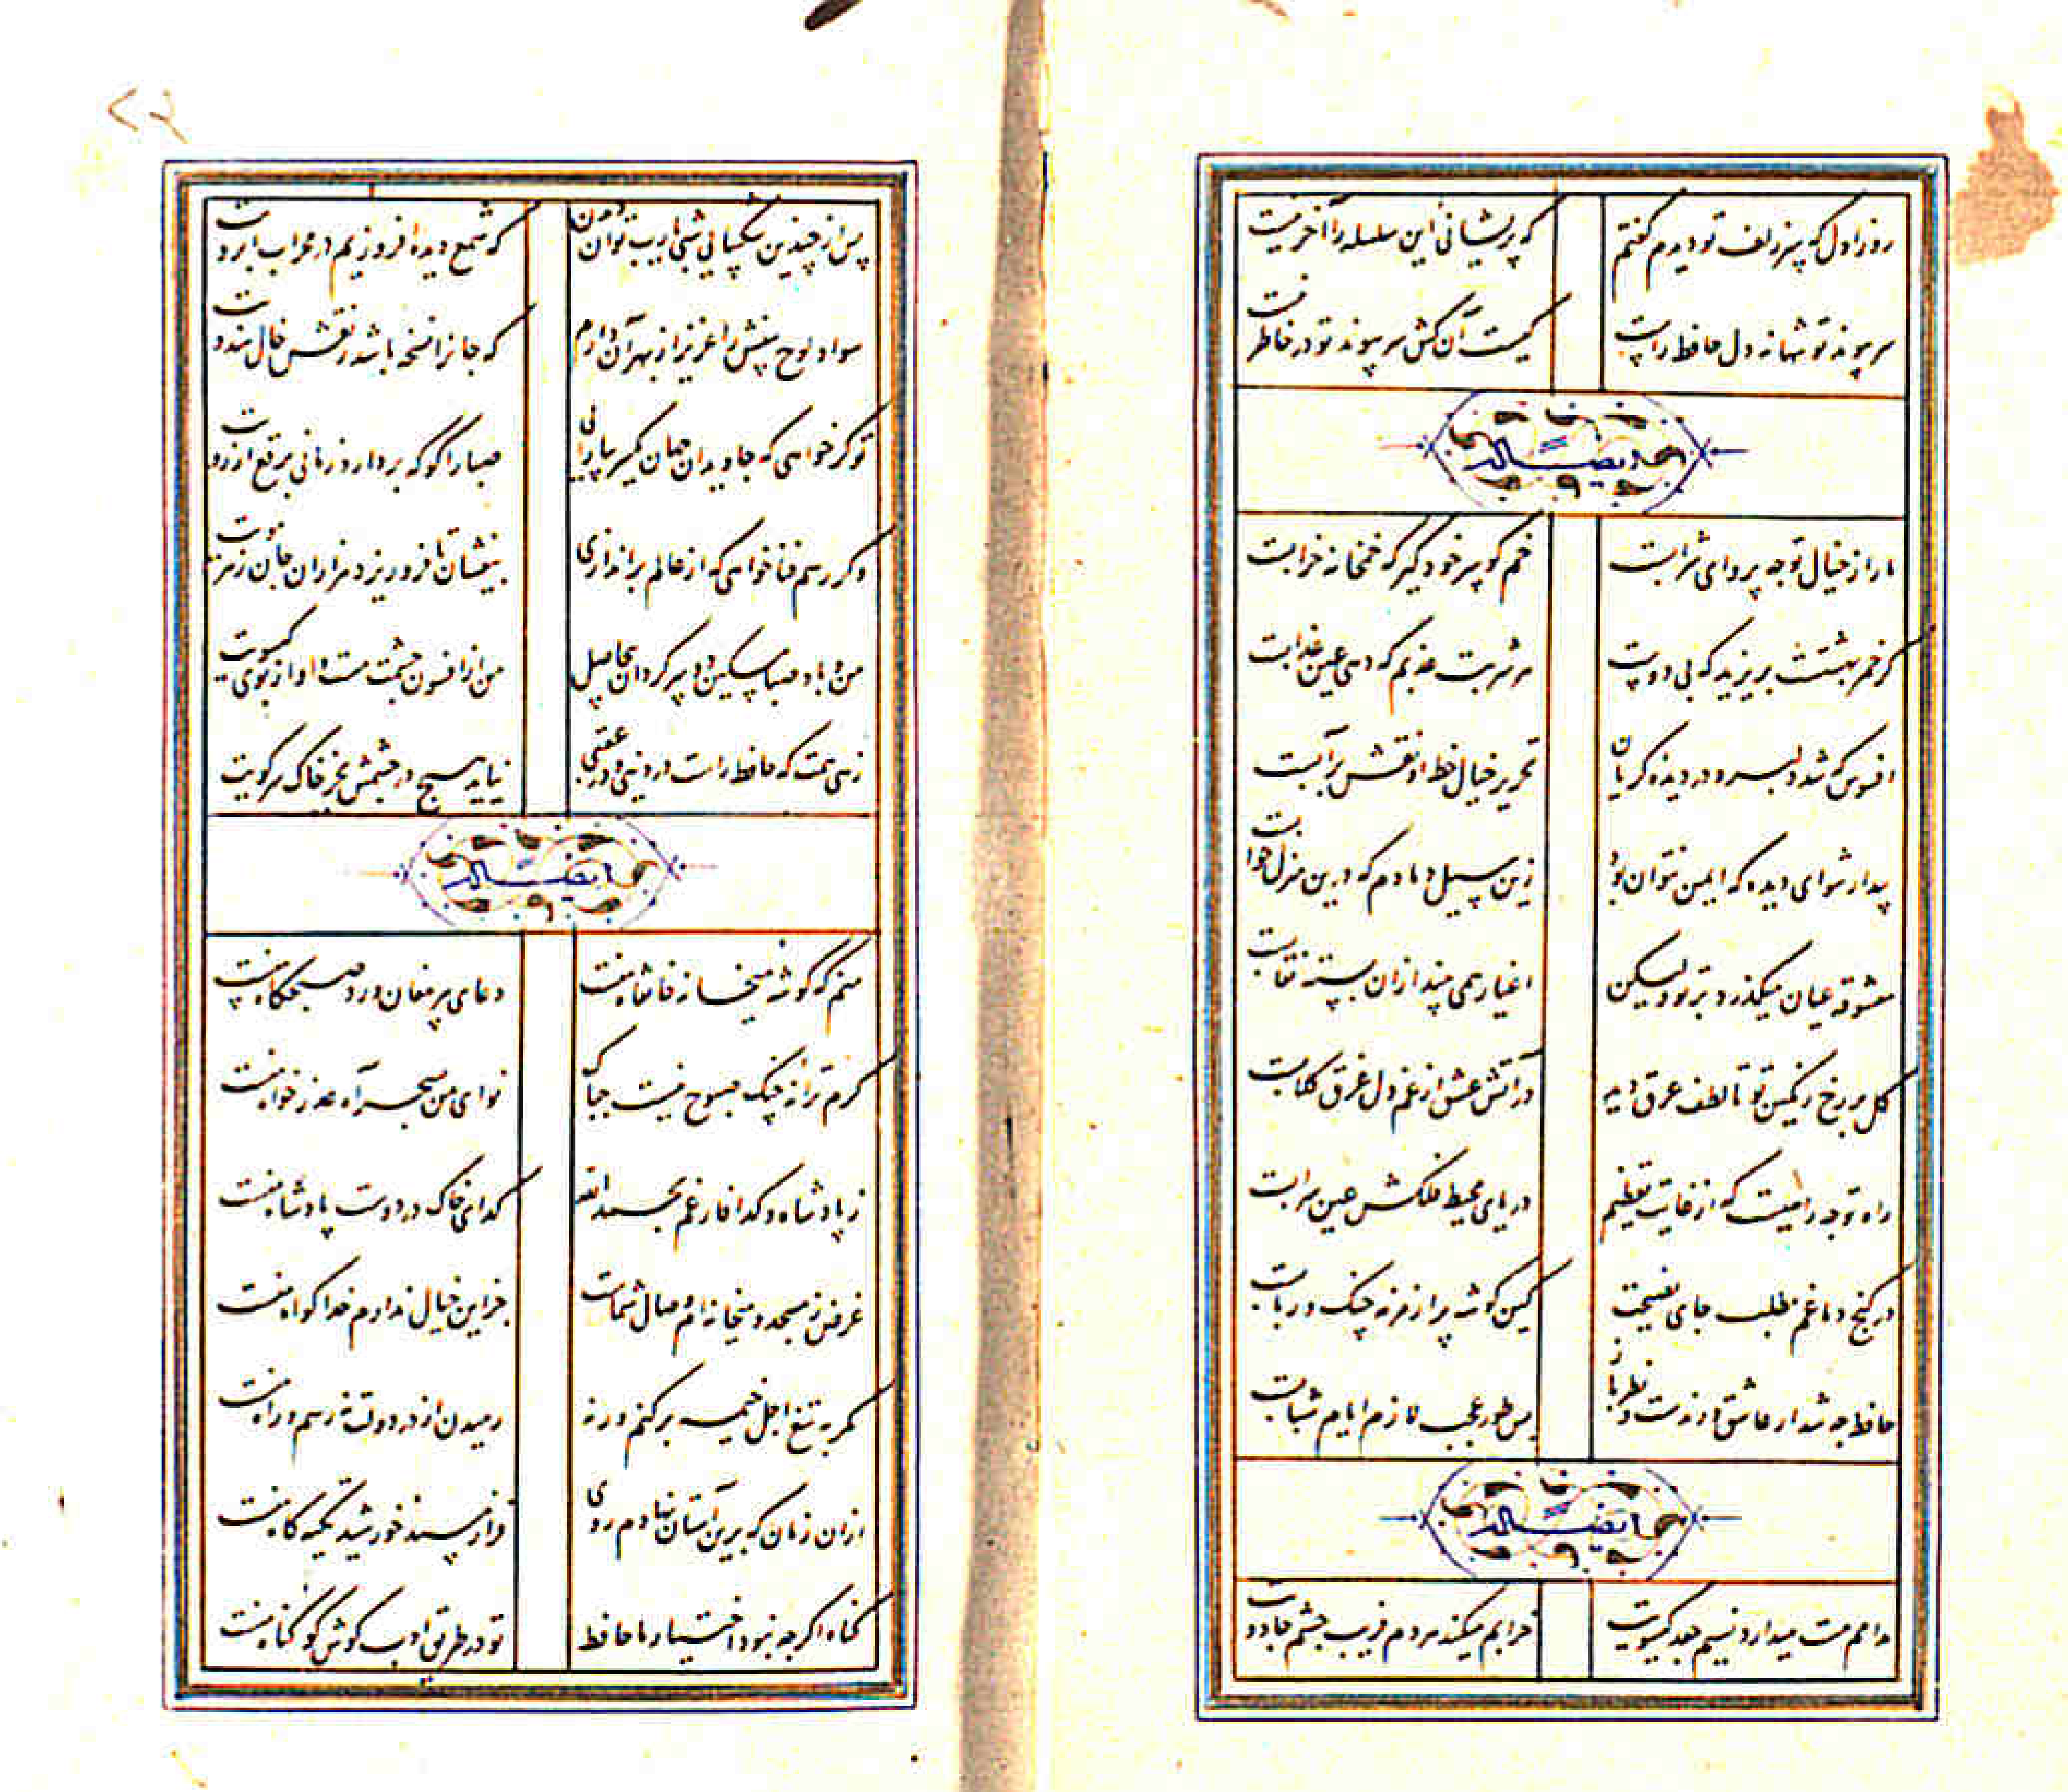 روز اول که سر زلف تو دیدم گفتم که پریشانی این سلسله را آخر نیست
سر پیوند تو تنها نه دل حافظ راست کیست آن کش سر پیوند تو در خاطر نیست
ایضاً له
ما را ز خیال تو چه پروای شرابست خم گو سر خود گیر که خمخانه خرابست
گر خمر بهشتست بریزید که بی دوست هر شربت عذبم که دهی عین عذابست
افسوس که شد دلبر و در دیده گریان تحریر خیال خط او نقش بر آبست
بیدار شو ای دیده که ایمن نتوان بود زین سیل دمادم که درین منزل خوابست
معشوقه عیان میگذرد بر تو ولیکن اغیار همی بیند ازان بسته نقابست
گل بر رخ رنگین تو تا لطف عرق دید در آتش عشق از غم دل غرق گلابست
راه تو چه راهیست که از غایت تعظیم دریای محیط فلکش عین سرابست
در کنج دماغم مطلب جای نصیحت کین گوشه پر از زمزمه چنگ و ربابست
حافظ چه شد ار عاشق و رندست و نظرباز بس طور عجب لازم ایام شبابست
ایضاً له
مدامم مست میدارد نسیم جعد گیسویت خرابم میکند هر دم فریب چشم جادویت
۲۲
پس از چندین شکیبایی شبی یارب توان دیدن که شمع دیده افروزیم در محراب ابرویت
سواد لوح بینش را عزیز از بهر آن دارم که جانرا نسخه باشد ز نقش خال هندویت
تو گر خواهی که جاویدان جهان یکسر بیارایی صبا را گو که بردارد زمانی برقع از رویت
وگر رسم فنا خواهی که از عالم براندازی بیفشان تا فرو ریزد هزاران جان ز هر مویت
من و باد صبا مسکین دو سرگردان بیحاصل من از افسون چشمت مست و او از بوی گیسویت
زهی همت که حافظ راست از دنیی و از عقبی نیاید هیچ در چشمش بجز خاک سر کویت
ایضاً له
منم که گوشه میخانه خانقاه منست دعای پیر مغان ورد صبحگاه منست
گرم ترانه چنگ صبوح نیست چه باک نوای من بسحر آه عذرخواه منست
ز پادشاه و گدا فارغم بحمد الله گدای خاک در دوست پادشاه منست
غرض ز مسجد و میخانه ام وصال شماست جز این خیال ندارم خدا گواه منست
مگر به تیغ اجل خیمه برکنم ور نه رمیدن از در دولت نه رسم و راه منست
ازان زمان که برین آستان نهادم روی فراز مسند خورشید تکیه گاه منست
گناه اگر چه نبود اختیار ما حافظ تو در طریق ادب کوش گو گناه منست